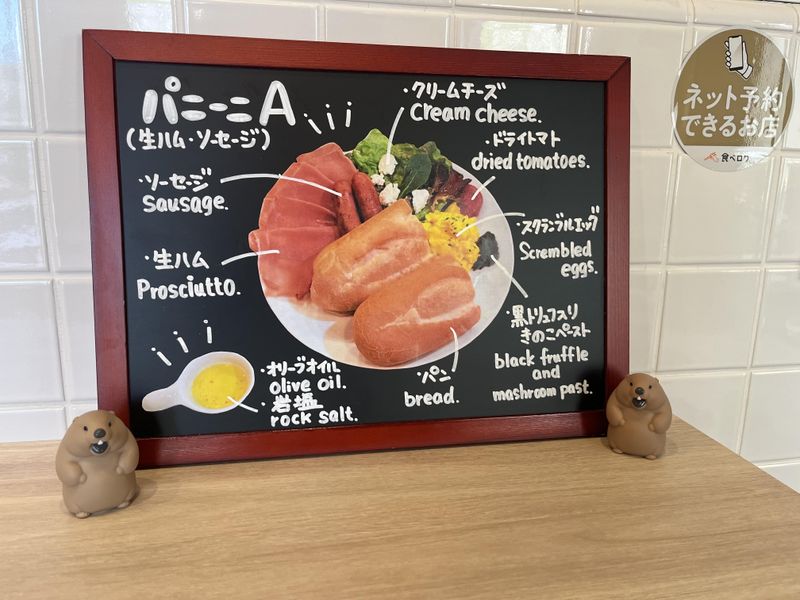 パニーニA
(生ハム・ソーセージ)
・クリームチーズ
cream cheese.
・ドライトマト
dried tomatoes.
・ソーセージ
Sausage.
・スクランブルエッグ
Scrembled
eggs.
・生ハム
Prosciutto.
・黒トリュフ入り
きのこペースト
black fruffle
and
mashroom past.
・オリーブオイル
olive oil.
・岩塩
rock salt.
・パン
bread.
ネット予約
できるお店
食べログ